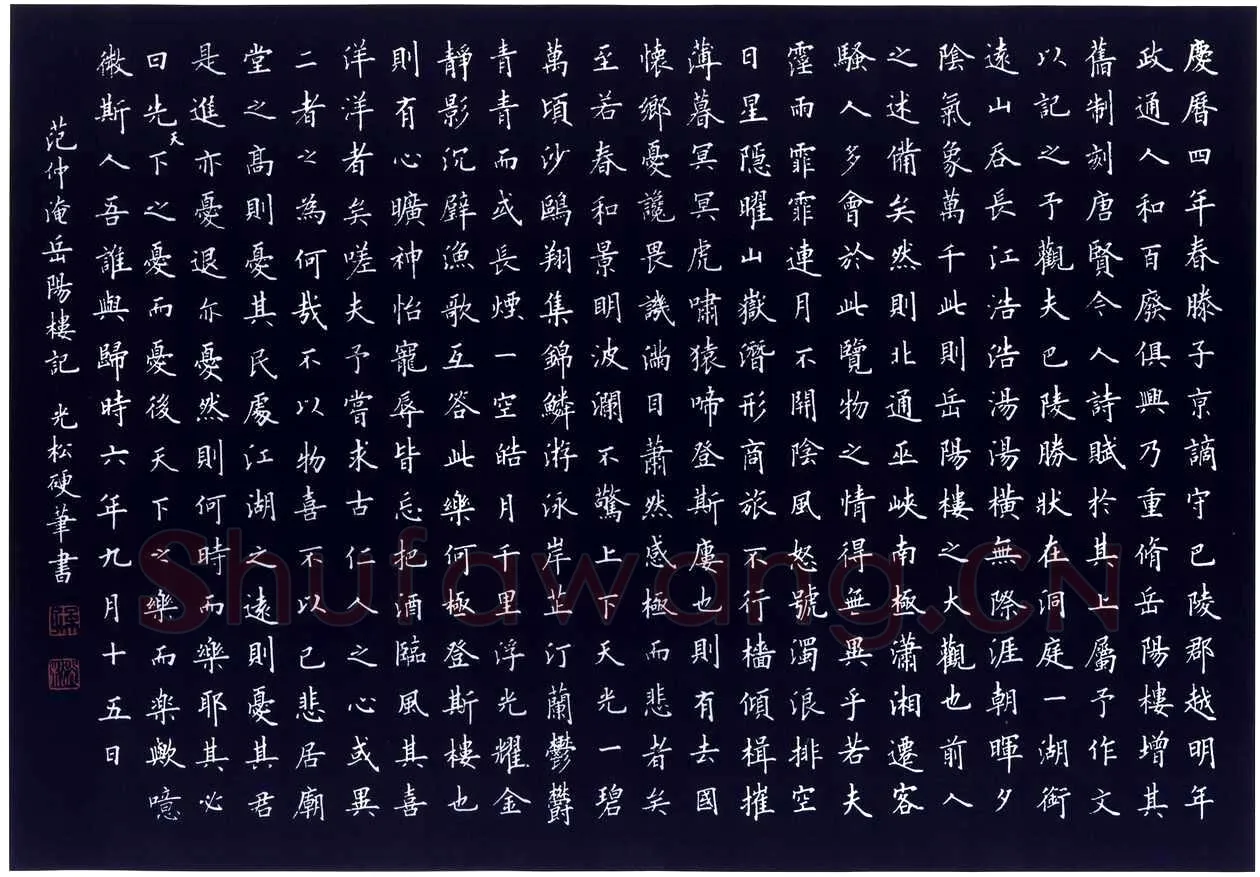 慶曆四年春滕子京謫守巴陵郡越明年
政通人和百廢俱興乃重脩岳陽樓增其
舊制刻唐賢今人詩賦於其上屬予作文
以記之予觀夫巴陵勝狀在洞庭一湖銜
遠山吞長江浩浩湯湯橫無際涯朝暉夕
陰氣象萬千此則岳陽樓之大觀也前人
之述備矣然則北通巫峽南極瀟湘遷客
騷人多會於此覽物之情得無異乎若夫
霪雨霏霏連月不開陰風怒號濁浪排空
日星隱曜山嶽潛形商旅不行檣傾楫摧
薄暮冥冥虎嘯猿啼登斯廔也則有去國
懷鄉憂讒畏譏滿目蕭然感極而悲者矣
至若春和景明波瀾不驚上下天光一碧
萬頃沙鷗翔集錦鱗游泳岸芷汀蘭鬱鬱
青青而或長煙一空皓月千里浮光耀金
靜影沉璧漁歌互答此樂何極登斯樓也
則有心曠神怡寵辱皆忘把酒臨風其喜
洋洋者矣嗟夫予嘗求古仁人之心或異
二者之為何哉不以物喜不以己悲居廟
堂之高則憂其民處江湖之遠則憂其君
是進亦憂退亦憂然則何時而樂耶其必
曰先天下之憂而憂後天下之樂而樂歟噫
微斯人吾誰與歸時六年九月十五日
范仲淹岳陽樓記 光松硬筆書
Shufawang.CN